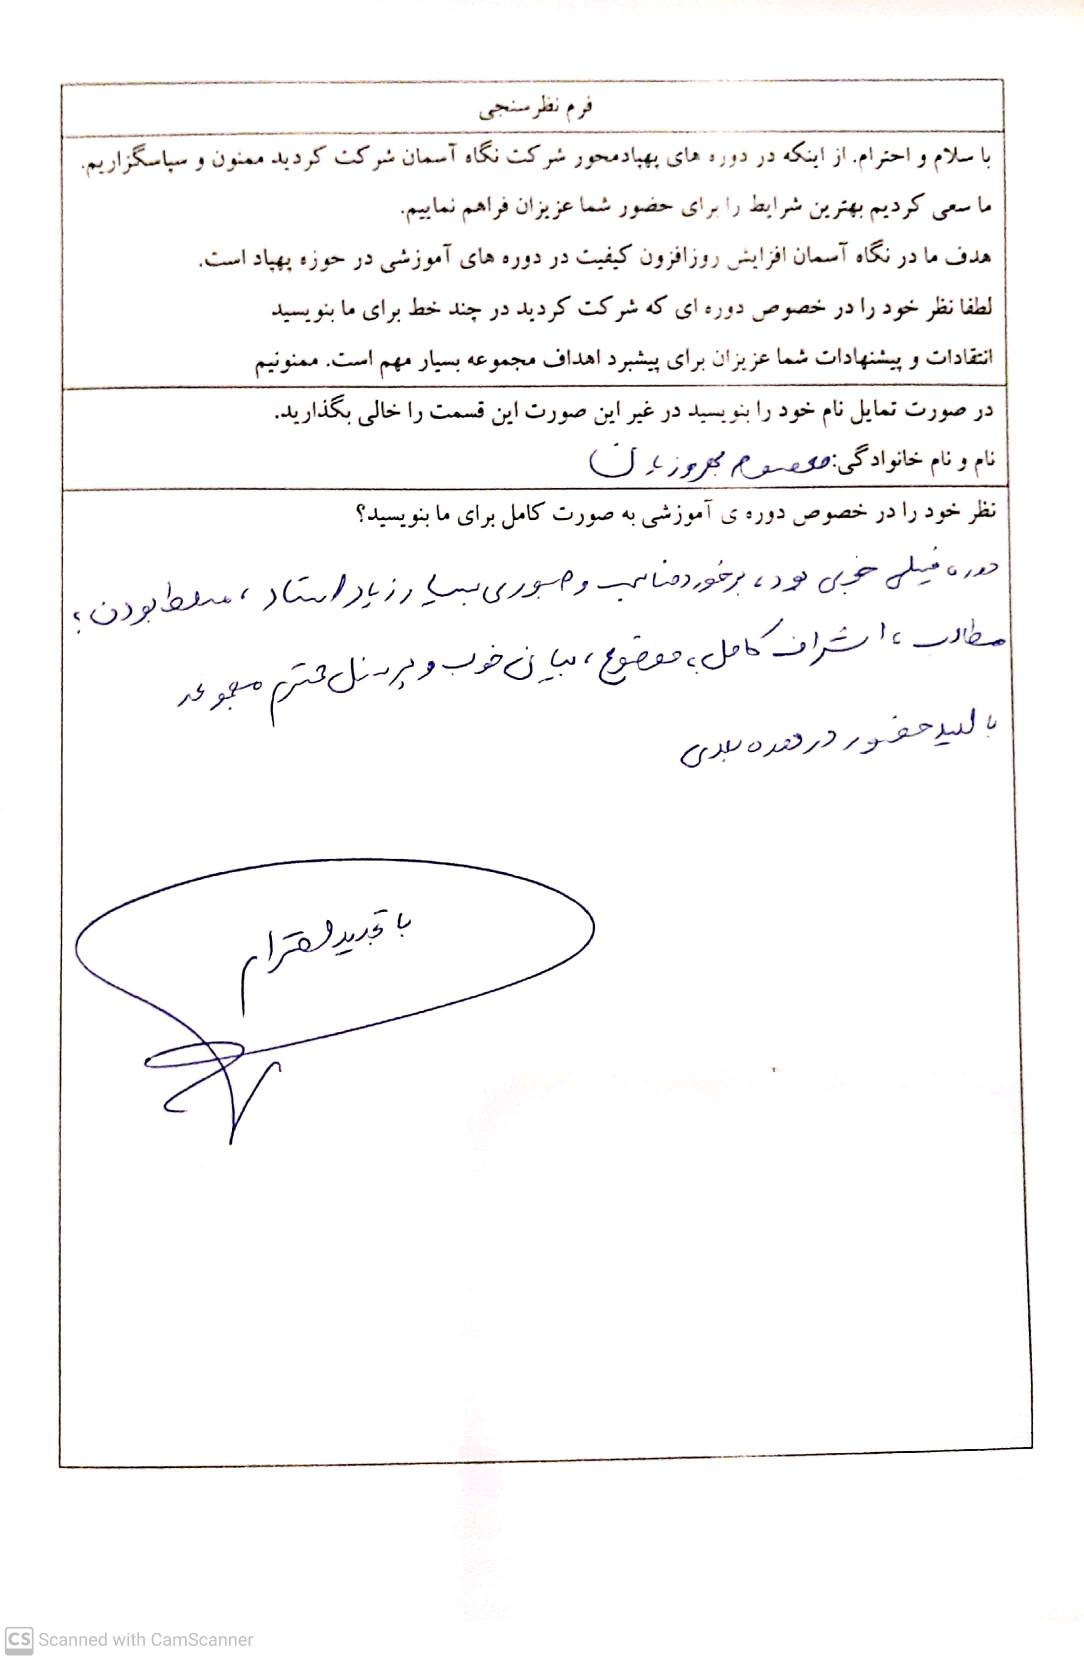 فرم نظرسنجی
با سلام و احترام. از اینکه در دوره های پهپادمحور شرکت نگاه آسمان شرکت کردید ممنون و سپاسگزاریم.
ما سعی کردیم بهترین شرایط را برای حضور شما عزیزان فراهم نماییم.
هدف ما در نگاه آسمان افزایش روزافزون کیفیت در دوره های آموزشی در حوزه پهپاد است.
لطفا نظر خود را در خصوص دوره ای که شرکت کردید در چند خط برای ما بنویسید
انتقادات و پیشنهادات شما عزیزان برای پیشبرد اهداف مجموعه بسیار مهم است. ممنونیم
در صورت تمایل نام خود را بنویسید در غیر این صورت این قسمت را خالی بگذارید.
نام و نام خانوادگی: معصوم
نظر خود را در خصوص دوره ی آموزشی به صورت کامل برای ما بنویسید؟
دوره خیلی خوبی بود، برخورد مناسب و صبوری بسیار زیاد استاد، مسلط بودن به
مطالب، اشراف کامل به موضوع، بیان خوب و پرسنل محترم مجموعه
با امید حضور در دوره بعدی
با تجدید احترام
CS Scanned with CamScanner